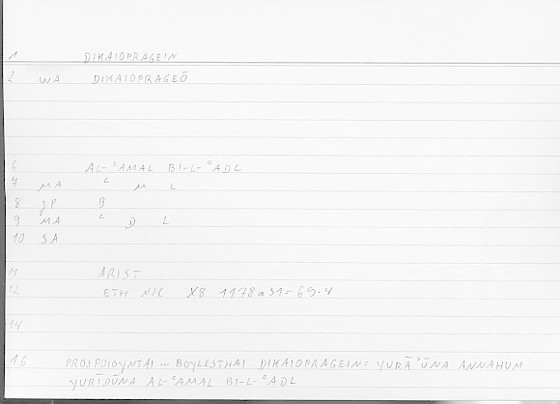 1 DIKAIOPRAGEIN
2 WA DIKAIOPRAGEŌ
6 AL-ʿAMAL BI-L-ʿADL
7 MA ʿ M L
8 JP B
9 MA ʿ D L
10 SA
11 ARIST
12 ETH NIC X8 1178a31=
14
16 PROSPOIOYNTAI ... BOYLESTHAI DIKAIOPRAGEIN: YURĀʾŪNA ANNAHUM
YURĪDŪNA AL-ʿAMAL BI-L-ʿADL